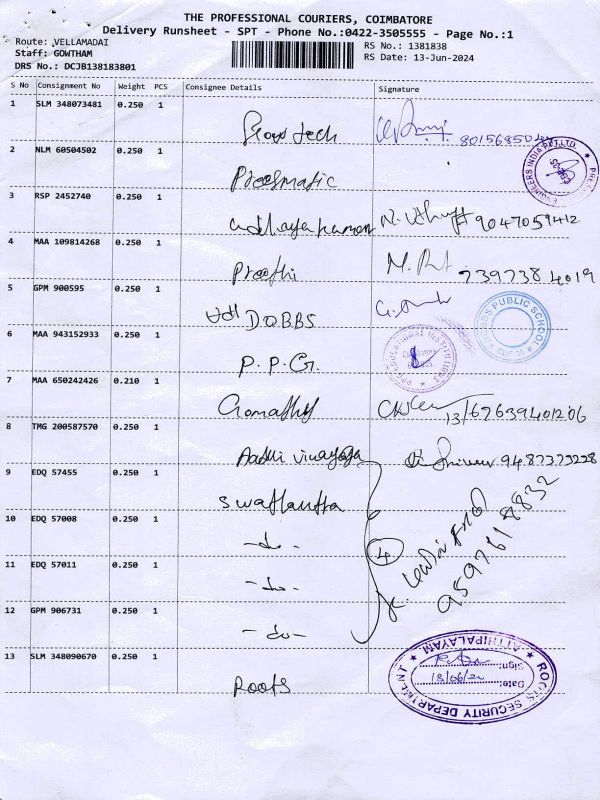 THE PROFESSIONAL COURIERS, COIMBATORE
Delivery Runsheet - SPT - Phone No.:0422-3505555 - Page No.:1
Route: VELLAMADAI
RS No.: 1381838
Staff: GOWTHAM
RS Date: 13-Jun-2024
DRS No.: DCJB138183801
S No Consignment No Weight PCS Consignee Details Signature
1 SLM 348073481 0.250 1
2 NLM 60504502 0.250 1
3 RSP 2452740 0.250 1
9047059412
4 MAA 109814268 0.250 1
Preethi
7397384019
5 GPM 900595 0.250 1
DOBBS
DOBBS PUBLIC SCHOOL
6 MAA 943152933 0.250 1
P.P.G.
7 MAA 650242426 0.210 1
Gomathy
8 TMG 200587570 0.250 1
Aadhi vinayaga
9 EDQ 57455 0.250 1
10 EDQ 57008 0.250 1
-do-
4
9597618832
11 EDQ 57011 0.250 1
-do-
12 GPM 906731 0.250 1
-do-
13 SLM 348090670 0.250 1
Roots
ROOTS SECURITY DEPARTMENT
ATHIPALAYAM
Sign:
Date: